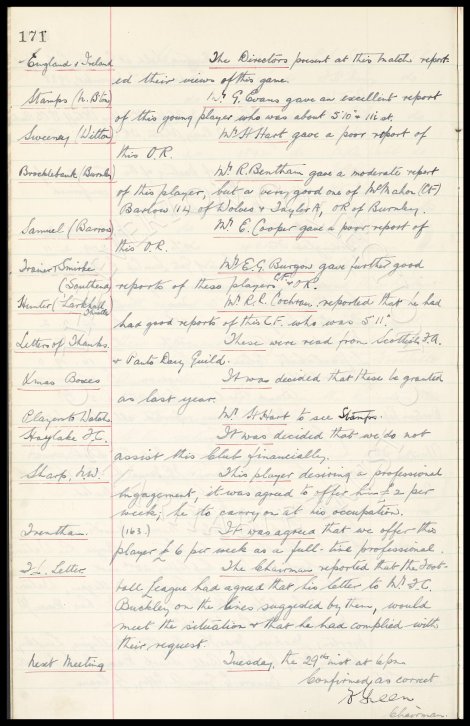 171
England v Ireland The Directors present at this match report-
ed their views of this game.
Stamps (N. Bton) Mr. G. Evans gave an excellent report
of this young player who was about 5'10" & 11½ st.
Sweeney (Witton) Mr. H. Hart gave a poor report of
this O.R.
Brocklebank (Burnley) Mr. R. Bentham gave a moderate report
of this player, but a very good one of McMahon (CF)
Barlow (IL) of Wolves & Taylor A, OR of Burnley.
Samuel (Barrow) Mr. C. Cooper gave a poor report of
this O.R.
Trainor & Smirke Mr. E.G. Burgon gave further good
(Southend) reports of these players C.F. & O.R.
Hunter (Larkhall Mr. R.R. Cochran, reported that he had
Thistle)
had good reports of this C.F. who was 5' 11".
Letters of Thanks. These were read from Scottish F.A.
& Panto Day Guild.
Xmas Boxes It was decided that these be granted
as last year.
Players to Watch Mr. H. Hart to see Stamps.
Hoylake F.C. It was decided that we do not
assist this Club financially.
Sharp, N.W. This player desiring a professional
engagement, it was agreed to offer him £2 per
week, he to carry on at his occupation.
Trentham. (163.) It was agreed that we offer this
player £6 per week as a full-time professional.
F.L. Letter The Chairman reported that the Foot-
ball League had agreed that his letter to Mr. F.C.
Buckley, on the lines suggested by them, would
meet the situation & that he had complied with
their request.
Next Meeting Tuesday, the 29th inst at 6 pm
Confirmed as correct
Green
Chairman.